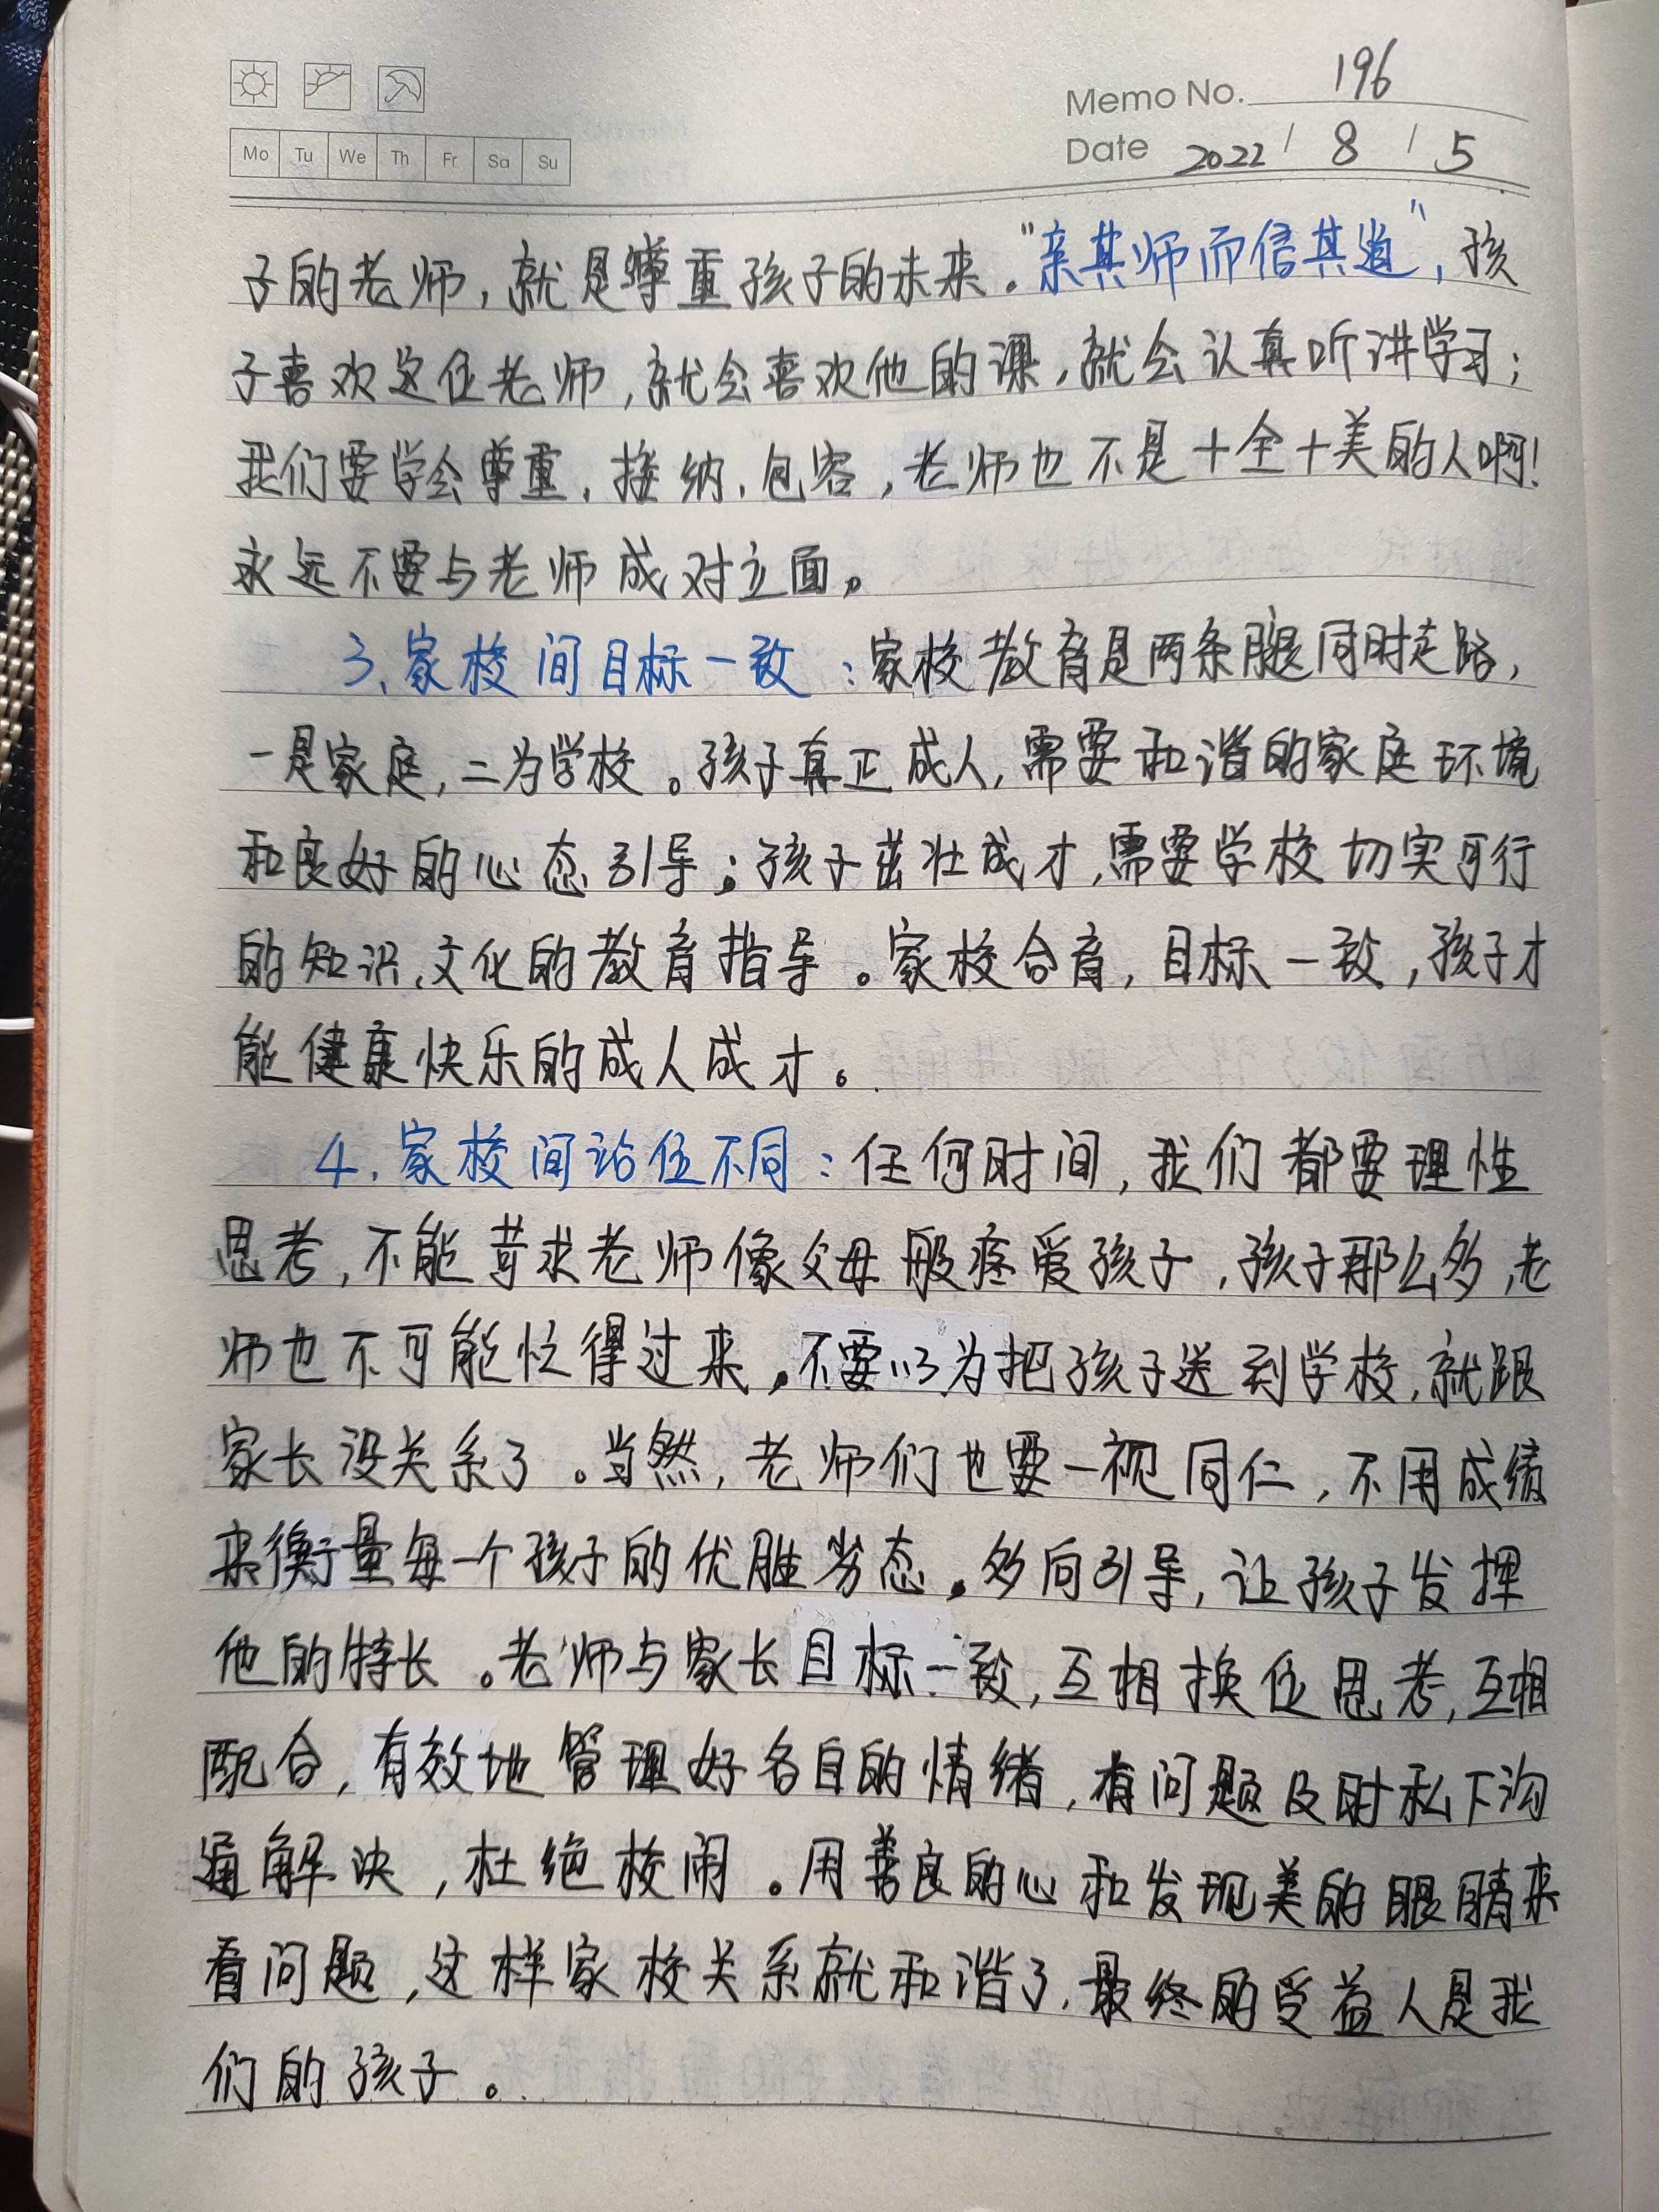 Memo No. 196
Mo Tu We Th Fr Sa Su
Date 2022 / 8 / 5
子的老师,就是尊重孩子的未来。“亲其师而信其道”,孩
子喜欢这位老师,就会喜欢他的课,就会认真听讲学习;
我们要学会尊重、接纳、包容,老师也不是十全十美的人啊!
永远不要与老师成对立面。
3、家校间目标一致:家校教育是两条腿同时走路,
一是家庭,二为学校。孩子真正成人,需要和谐的家庭环境
和良好的心态引导;孩子茁壮成才,需要学校切实可行
的知识、文化的教育指导。家校合育,目标一致,孩子才
能健康快乐的成人成才。
4、家校间站位不同:任何时间,我们都要理性
思考,不能苛求老师像父母般疼爱孩子,孩子那么多,老
师也不可能忙得过来。不要以为把孩子送到学校,就跟
家长没关系了。当然,老师们也要一视同仁,不用成绩
来衡量每一个孩子的优胜劣态。多向引导,让孩子发挥
他的特长。老师与家长目标一致,互相换位思考,互相
配合,有效地管理好各自的情绪,有问题及时私下沟
通解决,杜绝校闹。用善良的心和发现美的眼睛来
看问题,这样家校关系就和谐了,最终的受益人是我
们的孩子。